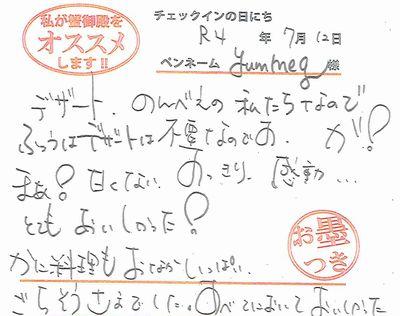 私が蟹御殿を
オススメ
します!!
チェックインの日にち
R4 年 7月 12日
ペンネーム yummeg 様
デザート。のんべえの私たちなので
ふつうはデザートは不要なのですが、が!
まあ?甘くない。すっきり。感動…
とてもおいしかった?
かに料理もおなかいっぱい。
ごちそうさまでした。すべてにおいておいしかった
お墨
つき